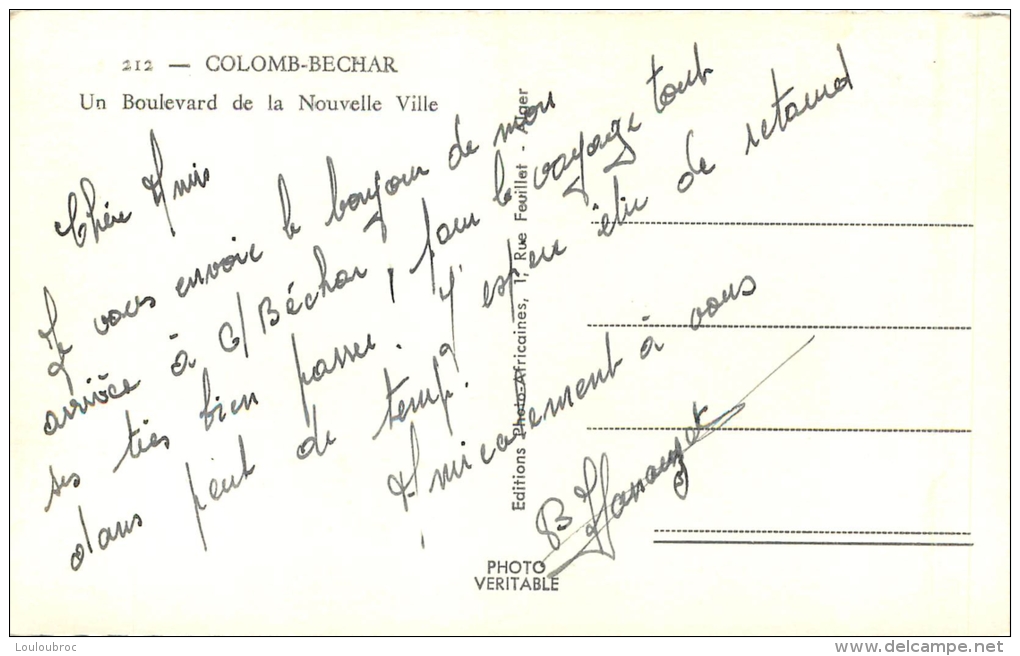 212 — COLOMB-BECHAR
Un Boulevard de la Nouvelle Ville
Chère Amis
Je vous envoie le bonjour de mon
arrivée à C/Béchar, pour le voyage tout
ses très bien passer. J'espere être de retourd
dans peut de temp!
Amicalement à vous
B
Editions Photo-Africaines, 1, Rue Feuillet - Alger
PHOTO
VERITABLE
Louloubroc
www.delcampe.net